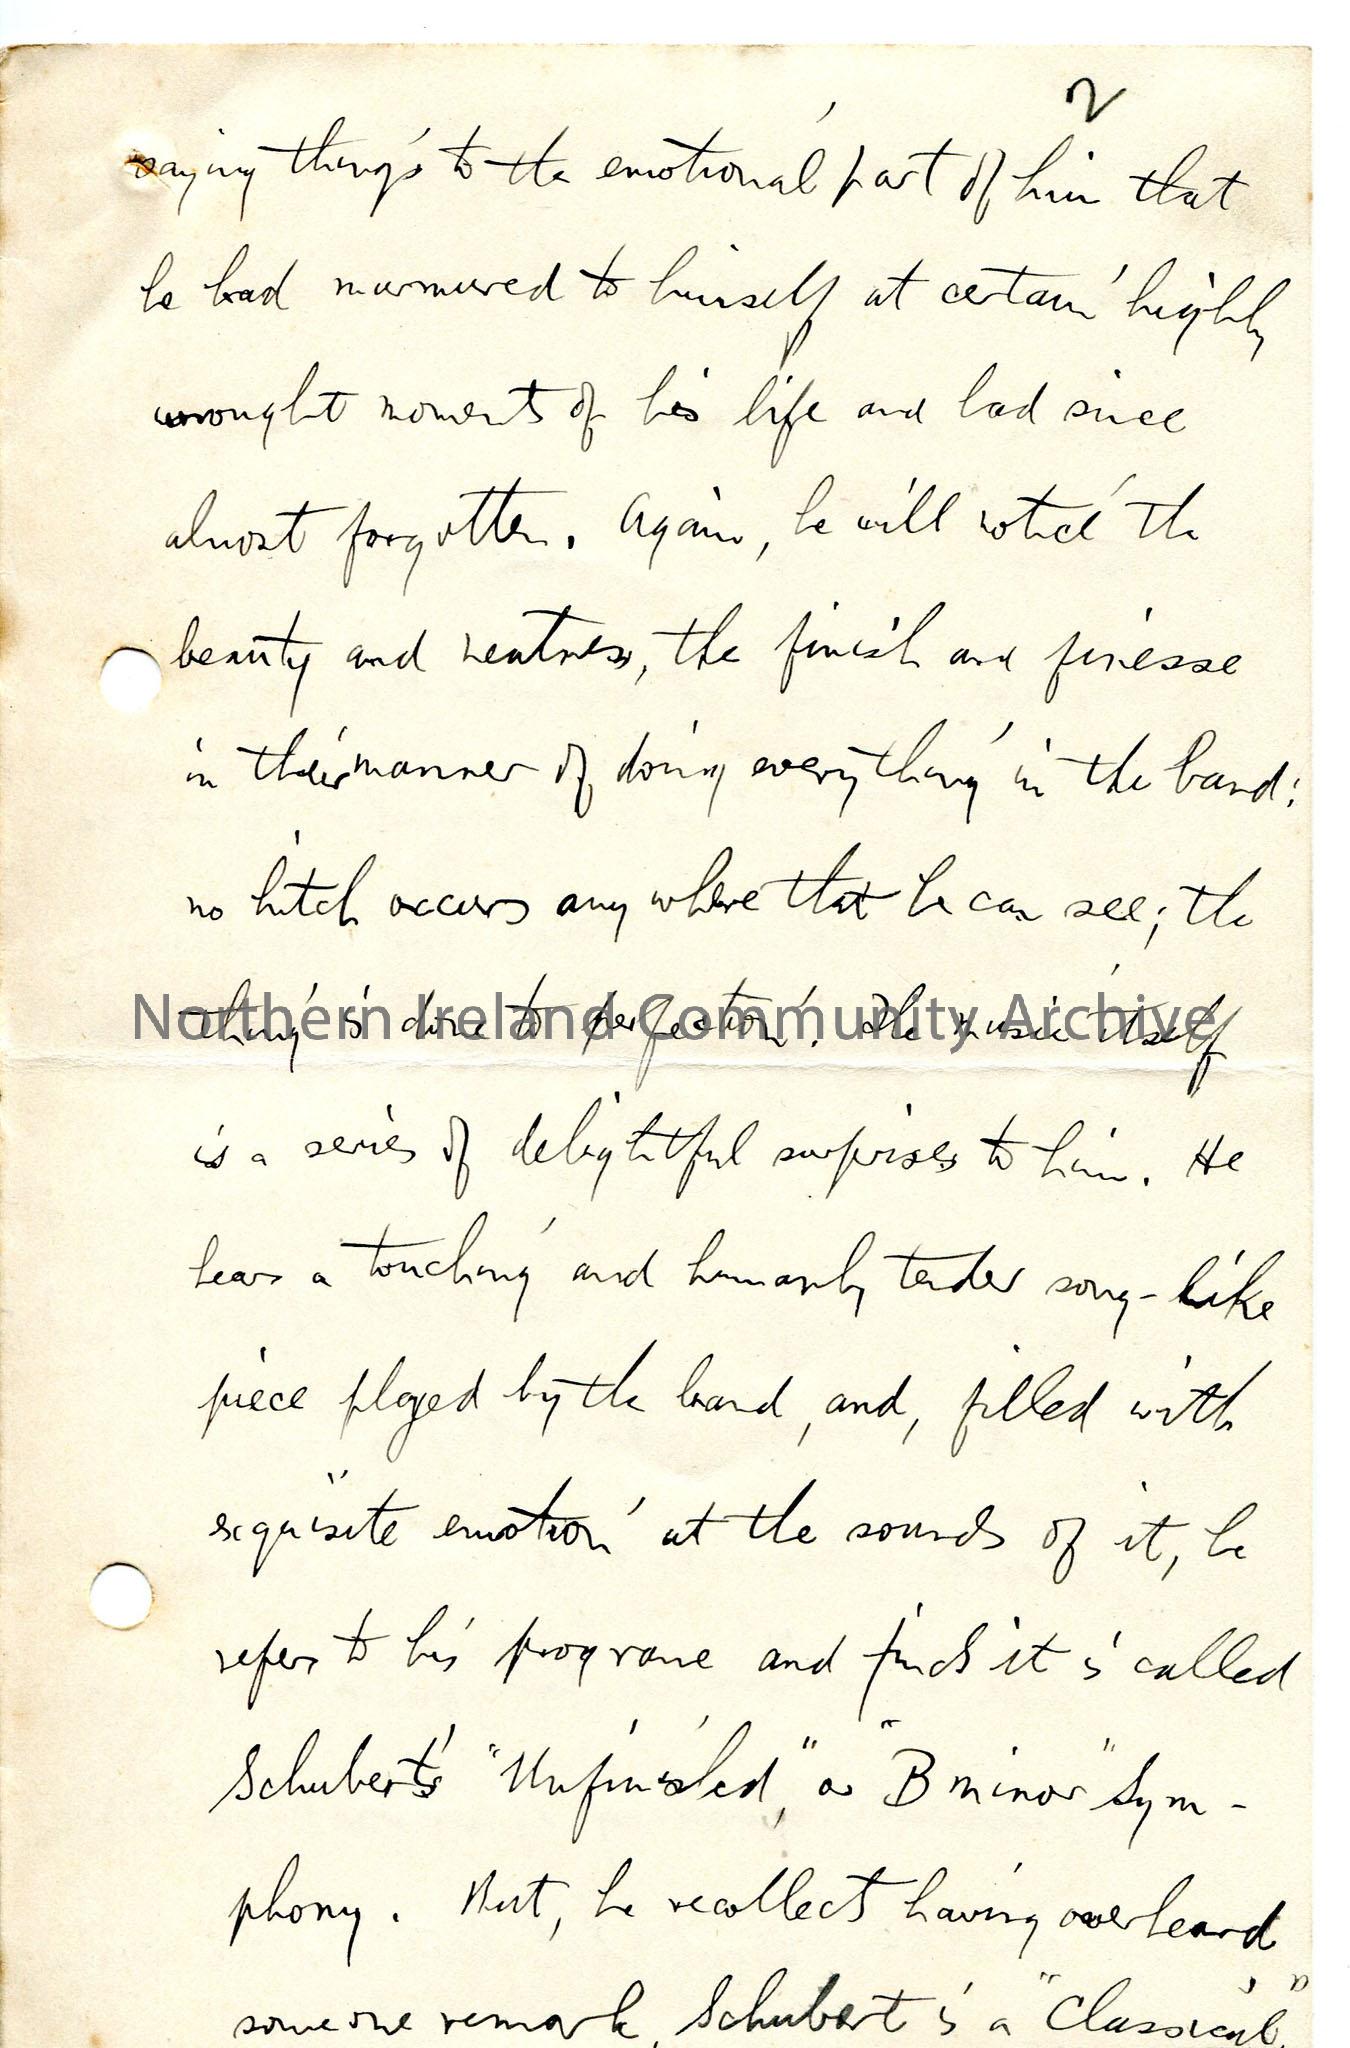 2
saying things to the emotional part of him that
he had murmured to himself at certain highly
wrought moments of his life and had since
almost forgotten. Again, he will notice the
beauty and neatness, the finish and finesse
in their manner of doing everything in the band:
no hitch occurs any where that he can see; the
thing is done to perfection. The music itself
Northern Ireland Community Archive
is a series of delightful surprises to him. He
hears a touching and humanly tender song-like
piece played by the band, and, filled with
exquisite emotion at the sounds of it, he
refers to his programe and finds it is called
Schubert's "Unfinished," or "B minor" Sym-
phony. But, he recollects having overheard
someone remark, Schubert is a "Classical,"